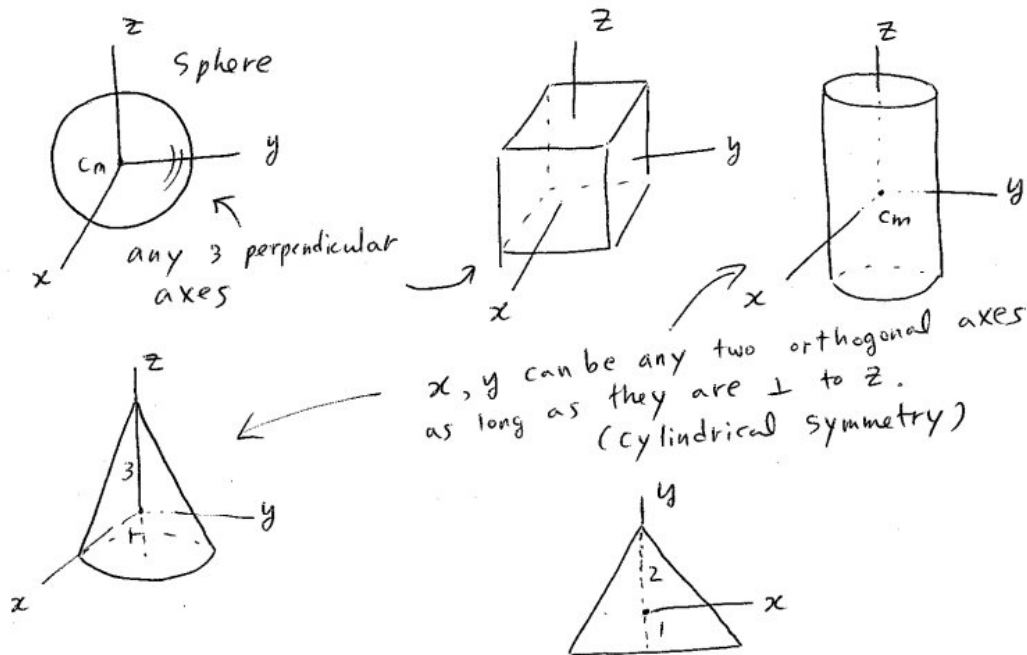 z
Sphere
y
Cm
x
any 3 perpendicular
axes
z
y
x
z
y
Cm
x
x, y can be any two orthogonal axes
as long as they are ⊥ to z.
(cylindrical symmetry)
z
3
y
1
x
y
2
x
1